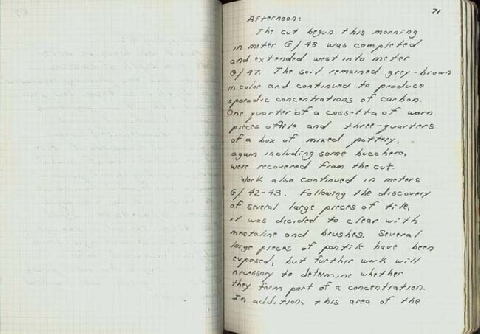 71
Afternoon:
The cut begun this morning
in meter G/43 was completed
and extended west into meter
G/47. The soil remained grey-brown
in color and continued to produce
sporadic concentrations of carbon.
One quarter of a cassetta of worn
pieces of tile and three-quarters
of a box of mixed pottery,
again including some bucchero,
were recovered from the cut.
Work also continued in meters
G/42-43. Following the discovery
of several large pieces of tile,
it was decided to clear with
and brushes. Several
large pieces of pantile have been
exposed, but further work will
necessary to determine whether
they form part of a concentration.
In addition, this area of the